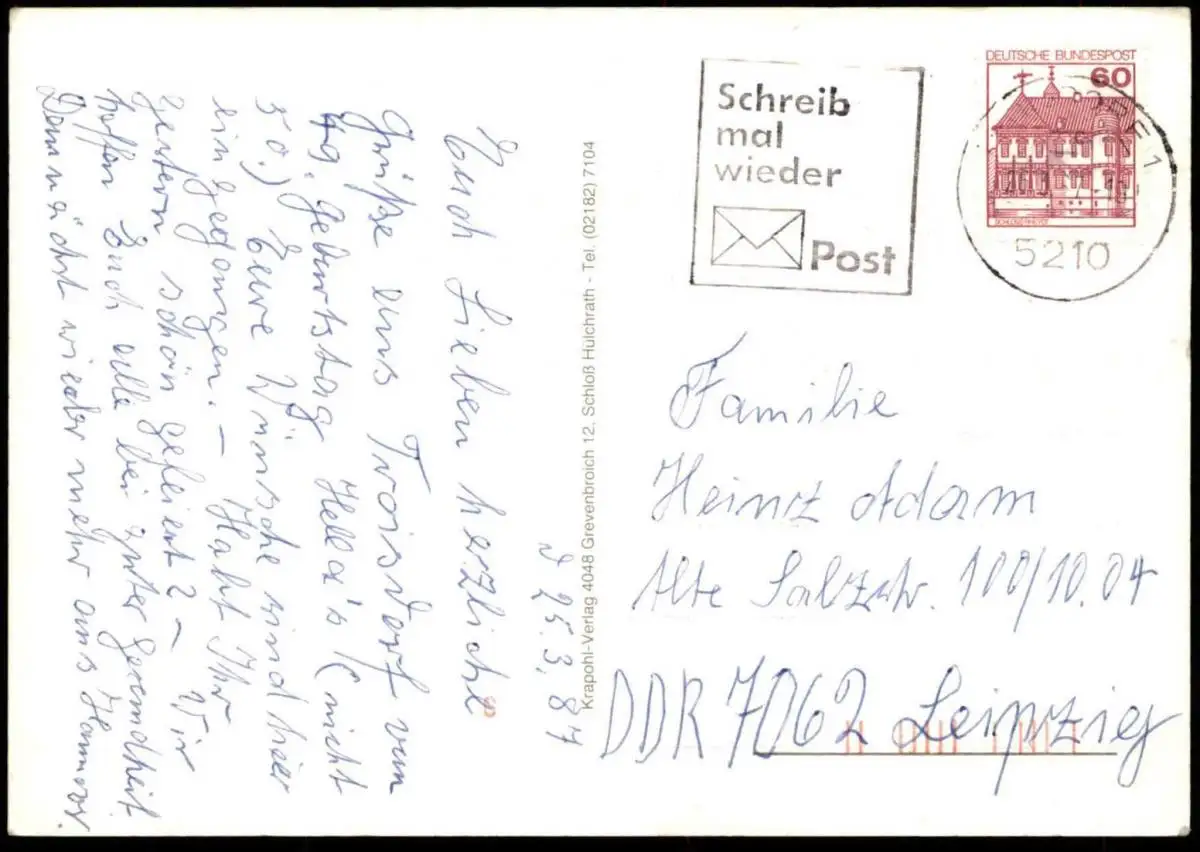 d 25.3.87
Euch Lieben herzliche
Grüße aus Troisdorf vom
49. Geburtstag Hella's (nicht
50.) Eure Wünsche sind hier
eingegangen. - Habt Ihr
gestern schön gefeiert? - Wir
hoffen Euch alle bei guter Gesundheit
Demnächst wieder mehr aus Hannover.
Krapohl-Verlag 4048 Grevenbroich 12, Schloß Hülchrath - Tel. (02182) 7104
Schreib
mal
wieder
Post
DEUTSCHE BUNDESPOST
60
5210
Familie
Heinz Adam
Alte Salzstr. 100/10.04
DDR 7062 Leipzig